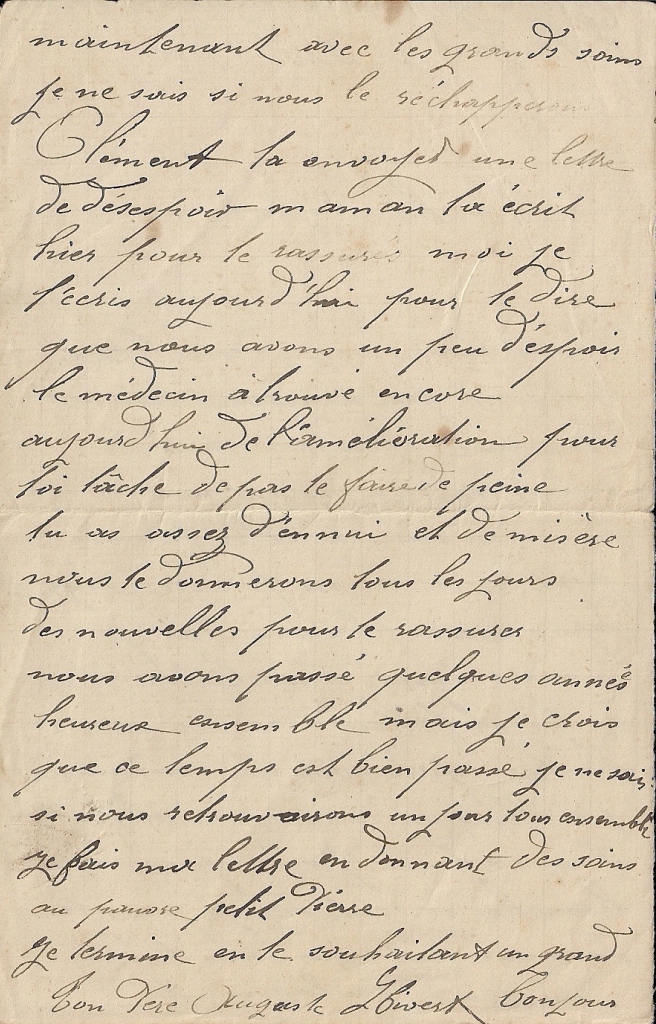 maintenant avec les grands soins
je ne sais si nous le réchapperons
Clément ta envoyer une lettre
de désespoir maman ta écrit
hier pour te rassurer moi je
t'écris aujourd'hui pour te dire
que nous avons un peu d'éspoir
le médecin à trouvé encore
aujourd'hui de l'amélioration pour
toi tâche de pas te faire de peine
tu as assez d'ennui et de misère
nous te donnerons tous les jours
des nouvelles pour te rassurer
nous avons passé quelques années
heureux ensemble mais je crois
que ce temps est bien passé je ne sais
si nous retrouverons un jour tous ensemble
je fais ma lettre en donnant des soins
au pauvre petit Pierre
Je termine en te souhaitant un grand
Ton Père Auguste Bonjour